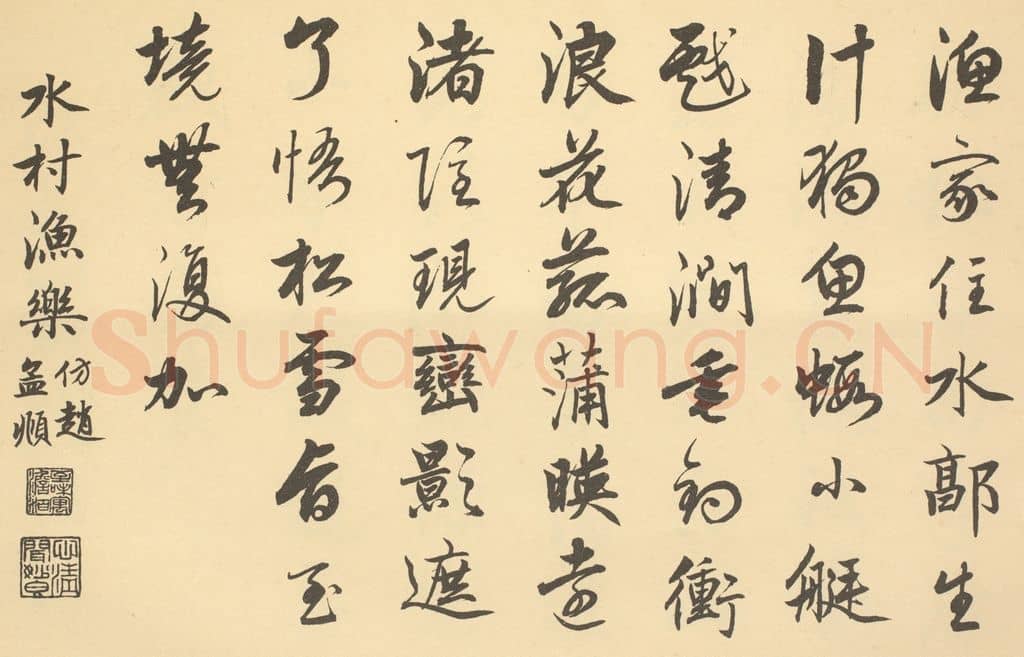 漁家住水鄗生
計獨魚蝦小艇
戲清澗垂釣衝
浪花菰蒲映遠
渚隱現巒影遮
了悟松雪旨至
境無復加
水村漁樂
仿趙
孟頫
Shufawang.CN